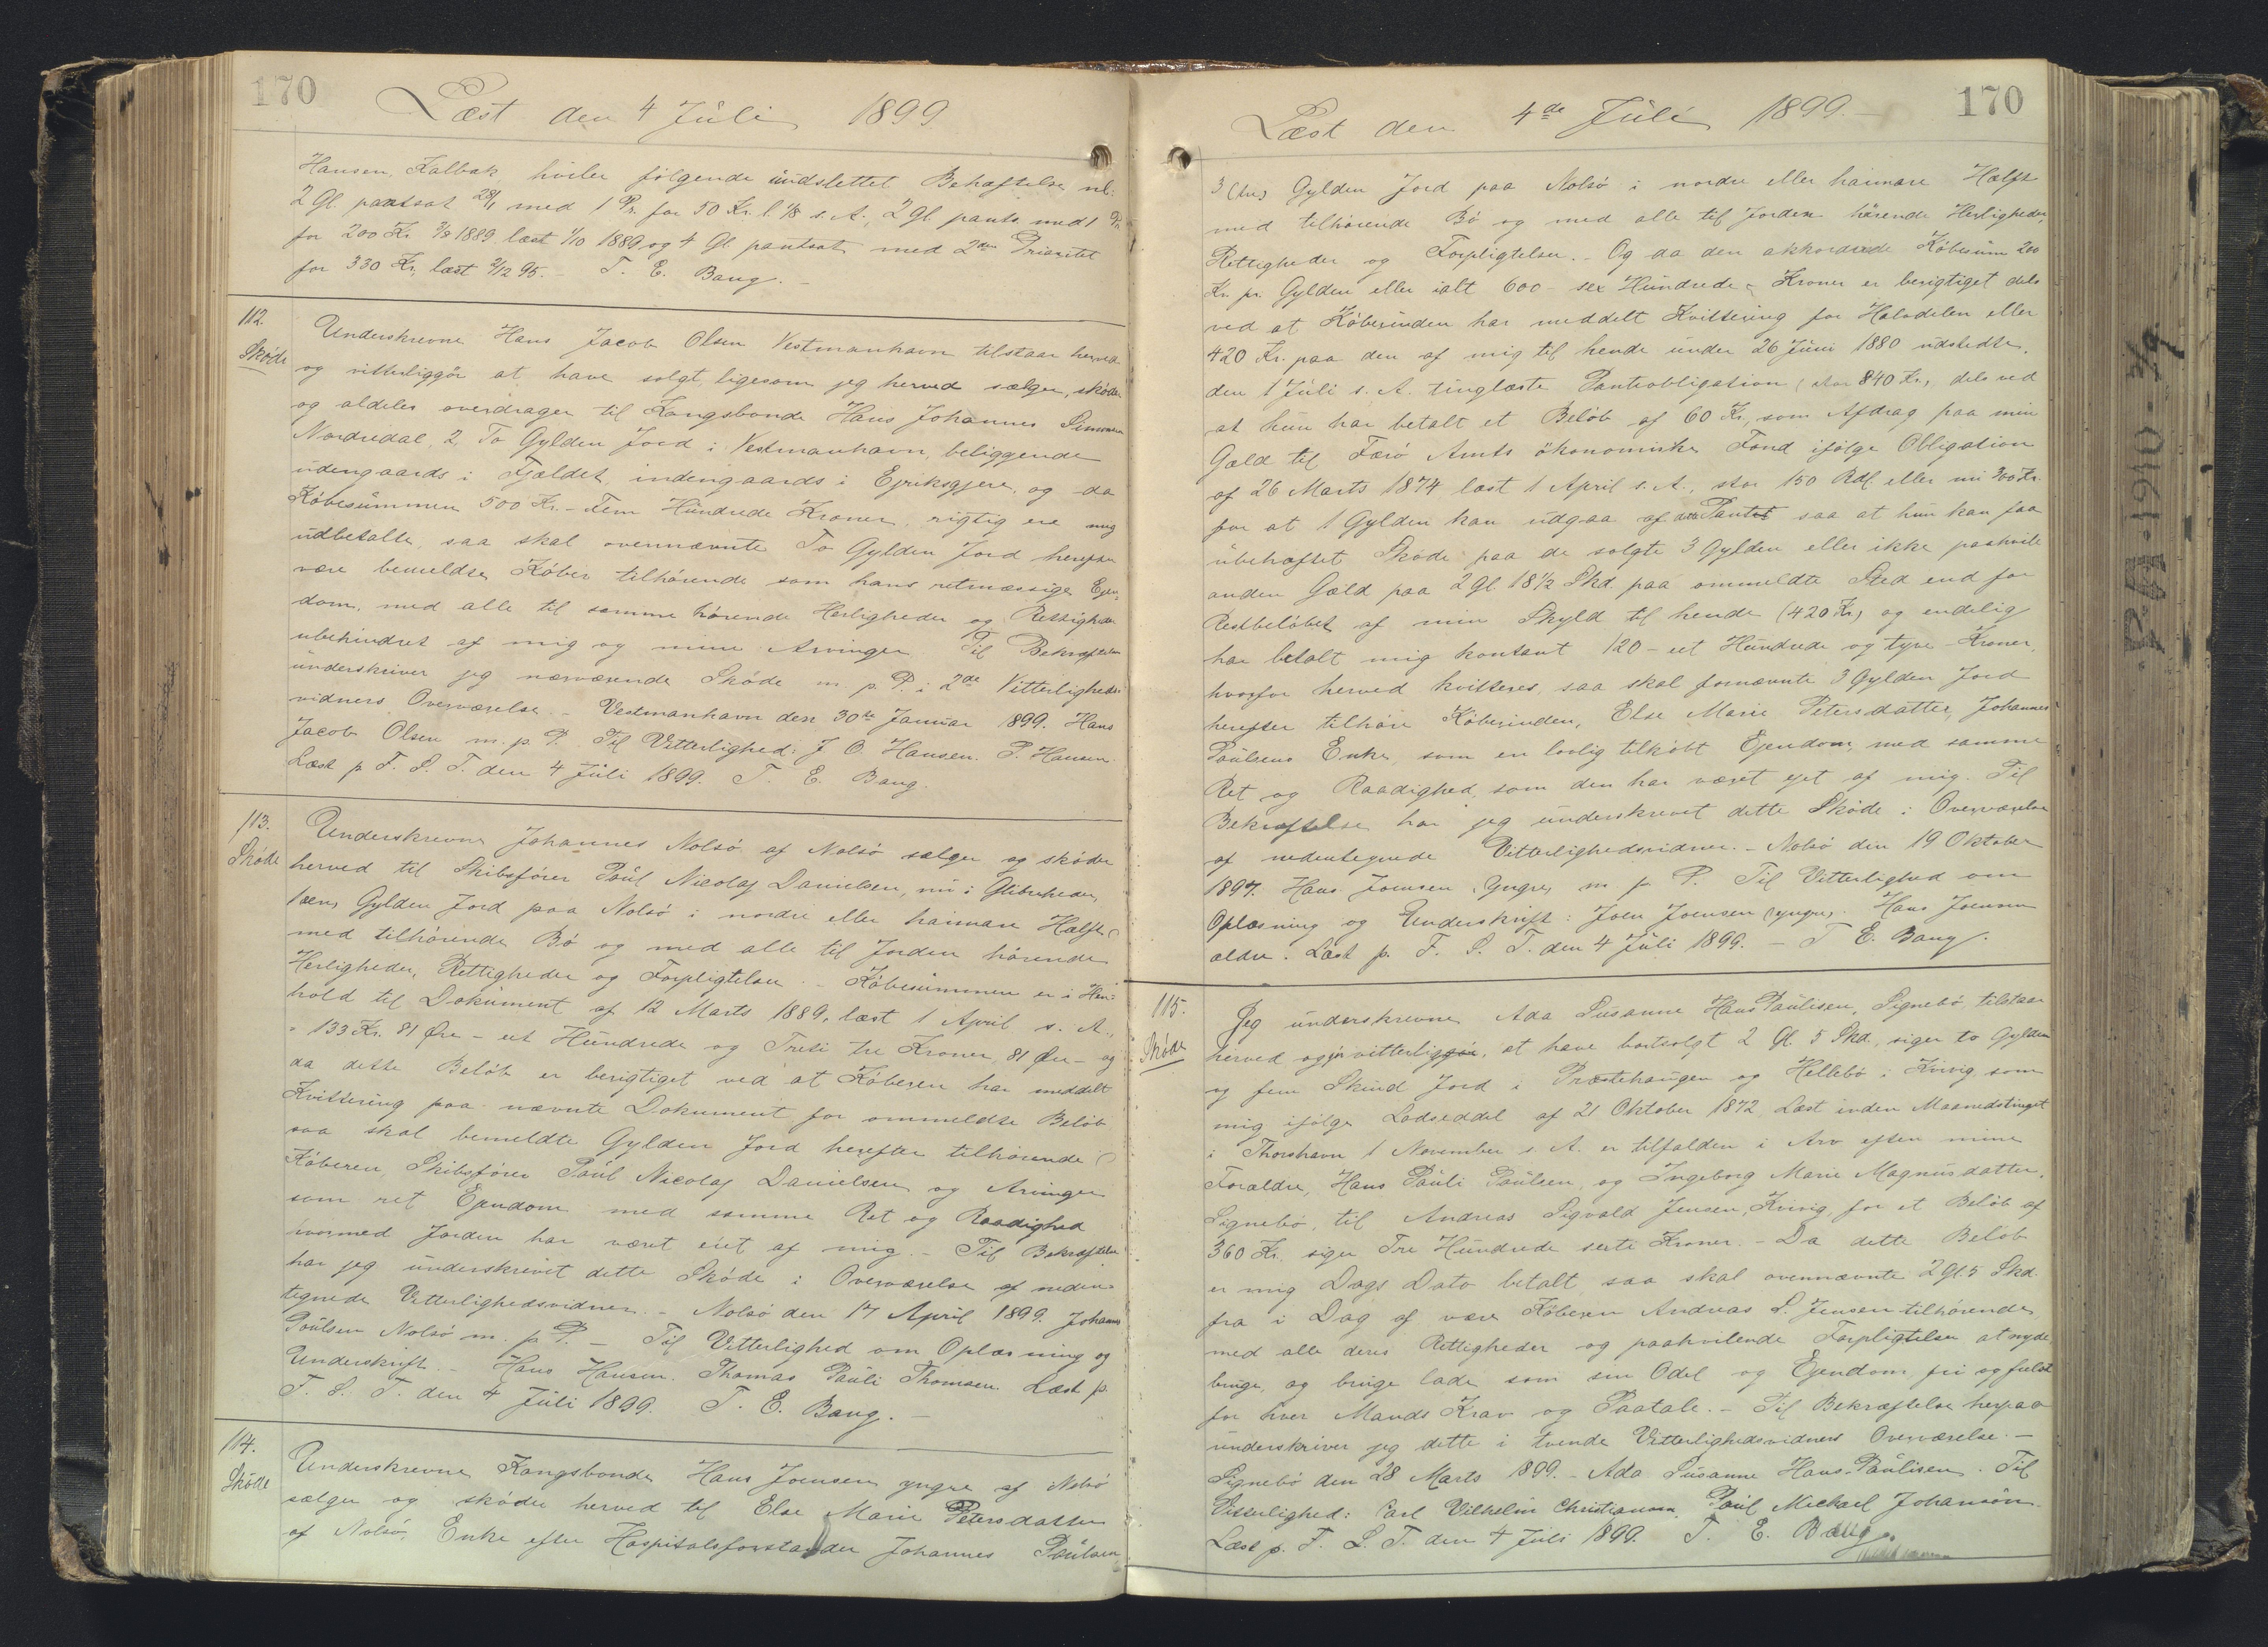 170
Læst den 4 Juli 1899
Hansen, Kalbak hviler følgende uudslettet Behæftelse nl:
2 Gl. pantsat 28/1 med 1 Pr. for 50 Kr. l. 1/8 s. A., 2 Gl. pants. med 1 Pr.
for 200 Kr. 3/8 1889 læst 1/10 1889 og 4 Gl. pantsat med 2den Prioritet
for 330 Kr, læst 2/12 95. - T. E. Bang. -
112.
Skøde
Underskrevne Hans Jacob Olsen Vestmanhavn tilstaar herved
og vitterliggör at have solgt, ligesom jeg herved sælger, skøder
og aldeles overdrager til Kongsbonde Hans Johannes Simonsen
Nordredal, 2, To Gylden Jord i Vestmanhavn, beliggende
udengaards i Fjældet, indengaards i Ejriksgjere, og da
Købesummen 500 Kr. - Fem Hundrede Kroner, rigtig ere mig
udbetalte, saa skal ovennævnte To Gylden Jord herefter
være bemeldte Køber tilhørende som hans retmæssige Ejen-
dom, med alle til samme hørende Herligheder og Rettigheder
ubehindret af mig og mine Arvinger. Til Bekræftelse
underskriver jeg nærværende Skøde m. p. P. i 2de Vitterligheds-
vidners Overværelse. - Vestmanhavn den 30te Januar 1899. Hans
Jacob Olsen m. p. P. Til Vitterlighed: J. O. Hansen. P. Hansen.
Læst p. F. S. T. den 4 Juli 1899. T. E. Bang.
113.
Skøde
Underskrevne Johannes Nolsö af Nolsö sælger og skøder
herved til Skibsfører Poul Nicolaj Danielsen, nu i
1 (en) Gylden Jord paa Nolsö i nordre eller haimare Hælfte
med tilhørende Bø og med alle til Jorden hørende
Herligheder, Rettigheder og Forpligtelser. - Købesummen er i Hen-
hold til Dokument af 12 Marts 1889, læst 1 April s. A.,
= 133 Kr. 81 Øre - et Hundrede og Treti tre Kroner, 81 Øre - og
da dette Beløb er berigtiget ved at Køberen har meddelt
Kvittering paa nævnte Dokument for ommeldte Beløb
saa skal bemeldte Gylden Jord herefter tilhørende
Køberen, Skibsfører Poul Nicolaj Danielsen og Arvinger
som ret Ejendom med samme Ret og Raadighed
hvormed Jorden har været eiet af mig. - Til Bekræftelse
har jeg underskrevet dette Skøde i Overværelse af neden-
tegnede Vitterlighedsvidner. - Nolsö den 17 April 1899. Johannes
Poulsen Nolsö m. p. P. - Til Vitterlighed om Oplæsning og
Underskrift. - Hans Hansen. Thomas Pauli Thomsen. Læst p.
F. S. T. den 4 Juli 1899. T. E. Bang. -
114.
Skøde
Underskrevne Kongsbonde Hans Joensen yngre af Nolsö
sælger og skøder herved til Else Marie Petersdatter
af Nolsö, Enke efter Hospitalsforstander Johannes Poulsen,
170
Læst den 4de Juli 1899. -
3 (tre) Gylden Jord paa Nolsö i nordre eller haimare Hælft
med tilhørende Bö og med alle til Jorden hørende Herligheder,
Rettigheder og Forpligtelser. - Og da den akkorderede Købesum 200
Kr. pr. Gylden eller ialt 600 - sex Hundrede - Kroner er berigtiget dels
ved at Køberinden har meddelt Kvittering for Halvdelen eller
420 Kr. paa den af mig til hende under 26 Juni 1880 udstedte,
den 1 Juli s. A. tinglæste Panteobligation (stor 840 Kr), dels ved
at hun har betalt et Beløb af 60 Kr., som Afdrag paa min
Gæld til Færö Amts ökonomiske Fond ifølge Obligation
af 26 Marts 1874 læst 1 April s. A., stor 150 Rdl. eller nu 300 Kr.
for at 1 Gylden kan udgaa af Pantet saa at hun kan faa
ubehæftet Skøde paa de solgte 3 Gylden eller ikke paahvile
anden Gæld paa 2 Gl. 18½ Skd. paa ommeldte Sted end for
Restbeløbet af min Skyld til hende (420 Kr) og endelig
har betalt mig kontant 120 - et Hundrede og tyve - Kroner,
hvorfor herved kvitteres, saa skal fornævnte 3 Gylden Jord
herefter tilhøre Køberinden, Else Marie Petersdatter, Johannes
Poulsens Enke, som en lovlig tilkøbt Ejendom, med samme
Ret og Raadighed, som den har været ejet af mig. Til
Bekræftelse har jeg underskrevet dette Skøde i Overværelse
af nedentegnede Vitterlighedsvidner. - Nolsö den 19 Oktober
1897. Hans Joensen, Yngre, m. p. P. Til Vitterlighed om
Oplæsning og Underskrift: Joen Joensen (yngre). Hans Joensen
ældre. Læst p. F. S. T. den 4 Juli 1899. - T. E. Bang.
115.
Skøde
Jeg underskrevne Ada Susanne Hans Paulisen, Signebö tilstaar
herved og gjör vitterlig, at have bortsolgt 2 Gl. 5 Skd, siger to Gylden
og fem Skind Jord i Præstehaugen og Hellebö i Kvivig som
mig ifølge Lodseddel af 21 Oktober 1872, Læst inden Maanedstinget
i Thorshavn 1 November s. A. er tilfalden i Arv efter mine
Forældre, Hans Pauli Poulsen, og Ingeborg Marie Magnusdatter,
Signebö, til Andreas Sigvald Jensen, Kvivig, for et Beløb af
360 Kr. siger Tre Hundrede seste Kroner. - Da dette Beløb
er mig Dags Dato betalt, saa skal ovennævnte 2 Gl. 5 Skd.
fra i Dag af være Køberen Andreas S. Jensen tilhørende
med alle deres Rettigheder og paahvilende Forpligtelser at nyde,
bruge, og bruge lade som sin Odel og Ejendom fri og frelst
for hver Mands Krav og Paatale. - Til Bekræftelse herpaa
underskriver jeg dette i tvende Vitterlighedsvidners Overværelse. -
Signebö den 28 Marts 1899. - Ada Susanne Hans-Paulisen. Til
Vitterlighed: Carl Vilhelm Christiansen, Poul Michael Johansön.
Læst p. F. S. T. den 4 Juli 1899. T. E. Bang.